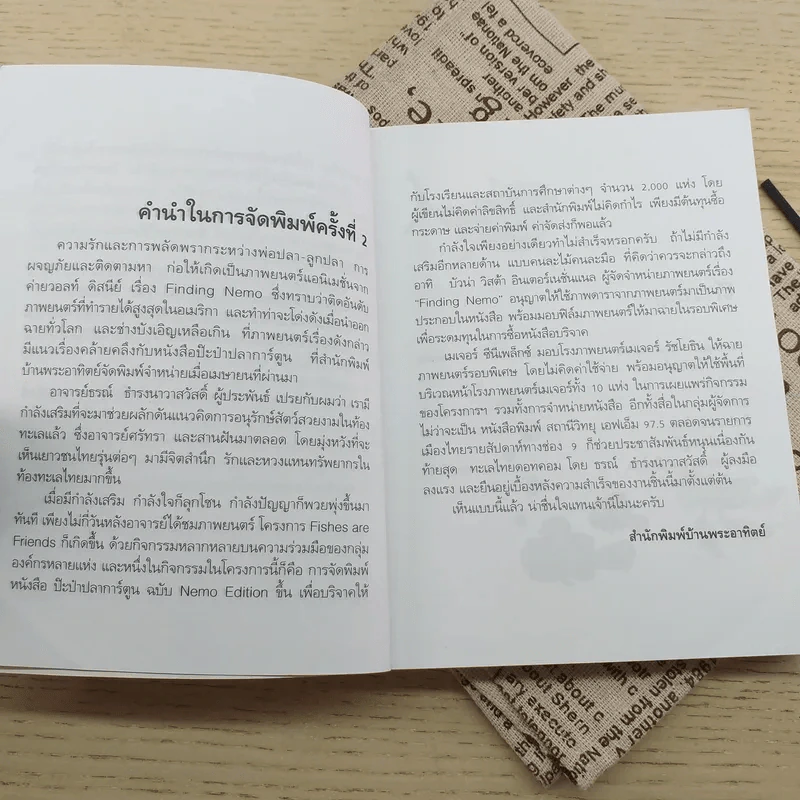 คำนำในการจัดพิมพ์ครั้งที่ 2
ความรักและการพลัดพรากระหว่างพ่อปลา-ลูกปลา การ
ผจญภัยและติดตามหา ก่อให้เกิดเป็นภาพยนตร์แอนิเมชั่นจาก
ค่ายวอลท์ ดิสนีย์ เรื่อง Finding Nemo ซึ่งทราบว่าติดอันดับ
ภาพยนตร์ที่ทำรายได้สูงสุดในอเมริกา และทำท่าจะโด่งดังเมื่อนำออก
ฉายทั่วโลก และช่างบังเอิญเหลือเกิน ที่ภาพยนตร์เรื่องดังกล่าว
มีแนวเรื่องคล้ายคลึงกับหนังสือป๊ะป๋าปลาการ์ตูน ที่สำนักพิมพ์
บ้านพระอาทิตย์จัดพิมพ์จำหน่ายเมื่อเมษายนที่ผ่านมา
อาจารย์ธรณ์ ธำรงนาวาสวัสดิ์ ผู้ประพันธ์ เปรยกับผมว่า เรามี
กำลังเสริมที่จะมาช่วยผลักดันแนวคิดการอนุรักษ์สัตว์สวยงามในท้อง
ทะเลแล้ว ซึ่งอาจารย์ศรัทรา และสานฝันมาตลอด โดยมุ่งหวังที่จะ
เห็นเยาวชนไทยรุ่นต่อๆ มามีจิตสำนึก รักและหวงแหนทรัพยากรใน
ท้องทะเลไทยมากขึ้น
เมื่อมีกำลังเสริม กำลังใจก็ลุกโชน กำลังปัญญาก็พวยพุ่งขึ้นมา
ทันที เพียงไม่กี่วันหลังอาจารย์ได้ชมภาพยนตร์ โครงการ Fishes are
Friends ก็เกิดขึ้น ด้วยกิจกรรมหลากหลายบนความร่วมมือของกลุ่ม
องค์กรหลายแห่ง และหนึ่งในกิจกรรมในโครงการนี้ก็คือ การจัดพิมพ์
หนังสือ ป๊ะป๋าปลาการ์ตูน ฉบับ Nemo Edition ขึ้น เพื่อบริจาคให้
กับโรงเรียนและสถาบันการศึกษาต่างๆ จำนวน 2,000 แห่ง โดย
ผู้เขียนไม่คิดค่าลิขสิทธิ์ และสำนักพิมพ์ไม่คิดกำไร เพียงมีต้นทุนซื้อ
กระดาษ และจ่ายค่าพิมพ์ ค่าจัดส่งก็พอแล้ว
กำลังใจเพียงอย่างเดียวทำไม่สำเร็จหรอกครับ ถ้าไม่มีกำลัง
เสริมอีกหลายด้าน แบบคนละไม้คนละมือ ที่คิดว่าควรจะกล่าวถึง
อาทิ บัวน่า วิสต้า อินเตอร์เนชั่นแนล ผู้จัดจำหน่ายภาพยนตร์เรื่อง
"Finding Nemo" อนุญาตให้ใช้ภาพดาราจากภาพยนตร์มาเป็นภาพ
ประกอบในหนังสือ พร้อมมอบฟิล์มภาพยนตร์ให้มาฉายในรอบพิเศษ
เพื่อระดมทุนในการซื้อหนังสือบริจาค
เมเจอร์ ซีนีเพล็กซ์ มอบโรงภาพยนตร์เมเจอร์ รัชโยธิน ให้ฉาย
ภาพยนตร์รอบพิเศษ โดยไม่คิดค่าใช้จ่าย พร้อมอนุญาตให้ใช้พื้นที่
บริเวณหน้าโรงภาพยนตร์เมเจอร์ทั้ง 10 แห่ง ในการเผยแพร่กิจกรรม
ของโครงการฯ รวมทั้งการจำหน่ายหนังสือ อีกทั้งสื่อในกลุ่มผู้จัดการ
ไม่ว่าจะเป็น หนังสือพิมพ์ สถานีวิทยุ เอฟเอ็ม 97.5 ตลอดจนรายการ
เมืองไทยรายสัปดาห์ทางช่อง 9 ก็ช่วยประชาสัมพันธ์หนุนเนื่องกัน
ท้ายสุด ทะเลไทยดอทคอม โดย ธรณ์ ธำรงนาวาสวัสดิ์ ผู้ลงมือ
ลงแรง และยืนอยู่เบื้องหลังความสำเร็จของงานชิ้นนี้มาตั้งแต่ต้น
เห็นแบบนี้แล้ว น่าชื่นใจแทนเจ้านีโมนะครับ
สำนักพิมพ์บ้านพระอาทิตย์